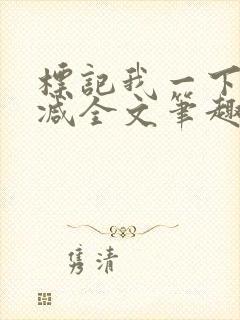 標記我一下
減全文筆趣
隽清